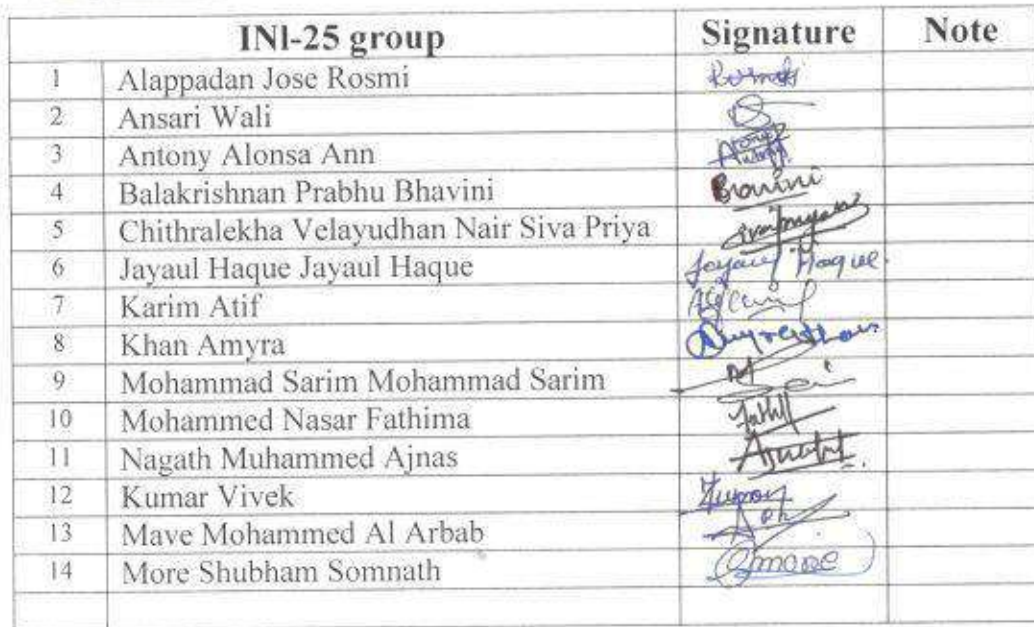 INI-25 group Signature Note
1 Alappadan Jose Rosmi
2 Ansari Wali
3 Antony Alonsa Ann
4 Balakrishnan Prabhu Bhavini Bhavini
5 Chithralekha Velayudhan Nair Siva Priya
6 Jayaul Haque Jayaul Haque Jayaul Haque.
7 Karim Atif
8 Khan Amyra
9 Mohammad Sarim Mohammad Sarim
10 Mohammed Nasar Fathima
11 Nagath Muhammed Ajnas
12 Kumar Vivek
13 Mave Mohammed Al Arbab
14 More Shubham Somnath